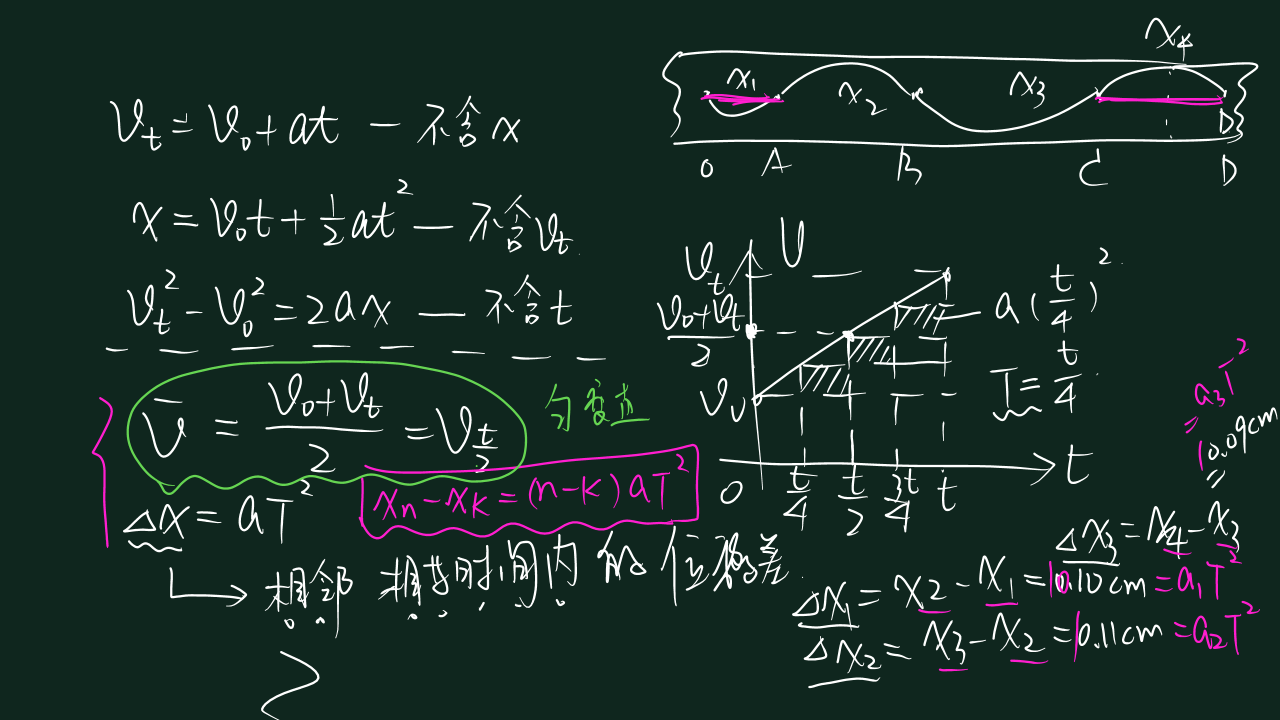 Vt = V₀ + at — 不含 x
x = V₀t + ½at² — 不含 Vt
Vt² - V₀² = 2ax — 不含 t
V̄ = (V₀+Vt)/2 = V_{t/2} 匀变直
Δx = aT²
xn - xk = (n-k)aT²
相邻 相等时间内 的 位移差
x₁ x₂ x₃ x₄
D
O A B C D
Vt V
(V₀+Vt)/2
V₀
a(t/4)²
T = t/4
O t/4 t/2 3t/4 t t
Δx₃ = x₄ - x₃ = 10.09cm = a₃T²
Δx₁ = x₂ - x₁ = 10.10cm = a₁T²
Δx₂ = x₃ - x₂ = 10.11cm = a₂T²